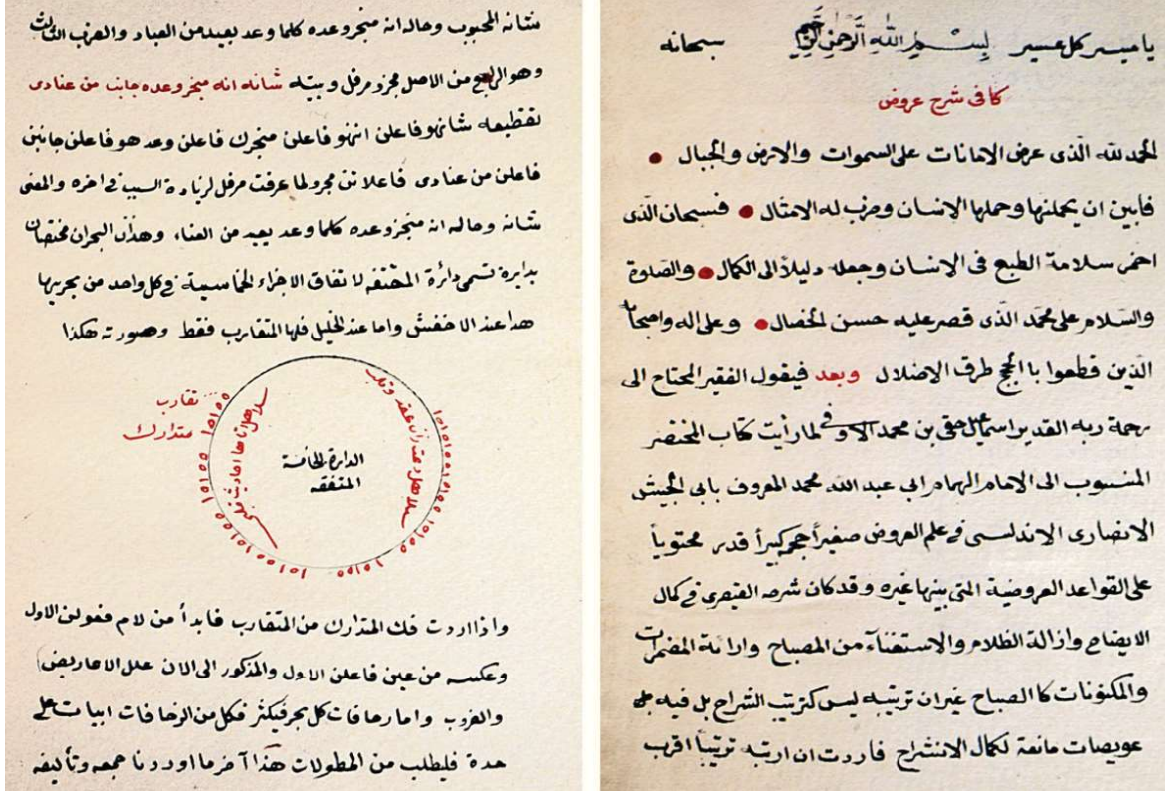 يا ميسر كل عسير بسم الله الرحمن الرحيم سبحانه
كافى شرح عروض
الحمد لله الذى عرض الامانات على السموات والارض والجبال
فابين ان يحملنها وحملها الانسان وضرب له الامثال فسبحان الذى
اخمر سلامة الطبع فى الانسان وجعله دليلاً الى الكمال والصلوة
والسلام على محمد الذى قصر عليه حسن الخصال وعلى اله واصحابه
الذين قطعوا بالحجج طرق الاضلال وبعد فيقول الفقير المحتاج الى
رحمة ربه القدير اسماعيل حقى بن محمد الاوفى لما رأيت كتاب المختصر
المنسوب الى الامام الهمام ابى عبد الله محمد المعروف بابى الجيش
الانصارى الاندلسى فى علم العروض صغيراً حجم كبيراً قدر محتوياً
على القواعد العروضية التى بينها غيره وقد كان شرحه القيصرى فى كمال
الايضاح وازالة الظلام والاستغناء من المصباح وارائة المضمرات
والمكنونات كا الصباح غير ان ترتيبه ليس كترتيب الشراح بل فيه
عويصات مانعة لكمال الانشراح فاردت ان ارتبه ترتيباً اقرب
شانه المحبوب وحاله انه منجز وعده كلما وعد بعيد من العباد والضرب الثالث
وهو الرابع من الاصل مجزو مرفل وبيته شانه انه منجز وعده جانب من عنادى
تقطيعه شانهو فاعلن انهو فاعلن منجزن فاعلن وعدهو فاعلن جانبن
فاعلن من عنادى فاعلاتن مجزو لما عرفت مرفل لزيادة السبب فى اخره والمعنى
شانه وحاله انه منجز وعده كلما وعد بعيد من العناد وهذان البحران مختصان
بدايرة تسمى دائرة المتفقه لاتفاق الاجزاء الخماسية فى كل واحد من بحريها
هذا عند الاخفش واما عند الخليل فلها المتقارب فقط وصورته هكذا
تقارب
متدارك
الدارة الخامسة
المتفقه
واذا اردت فك المتدارك من المتقارب فابدأ من لام فعولن الاول
وعكسه من عين فاعلن الاول والمذكور الى الان علل الاعاريض
والضروب واما زحافات كل بحر فيكثر فكل من الزحافات ابيات على
حدة فليطلب من المطولات هذا آخر ما اوردنا جمعه وتأليفه